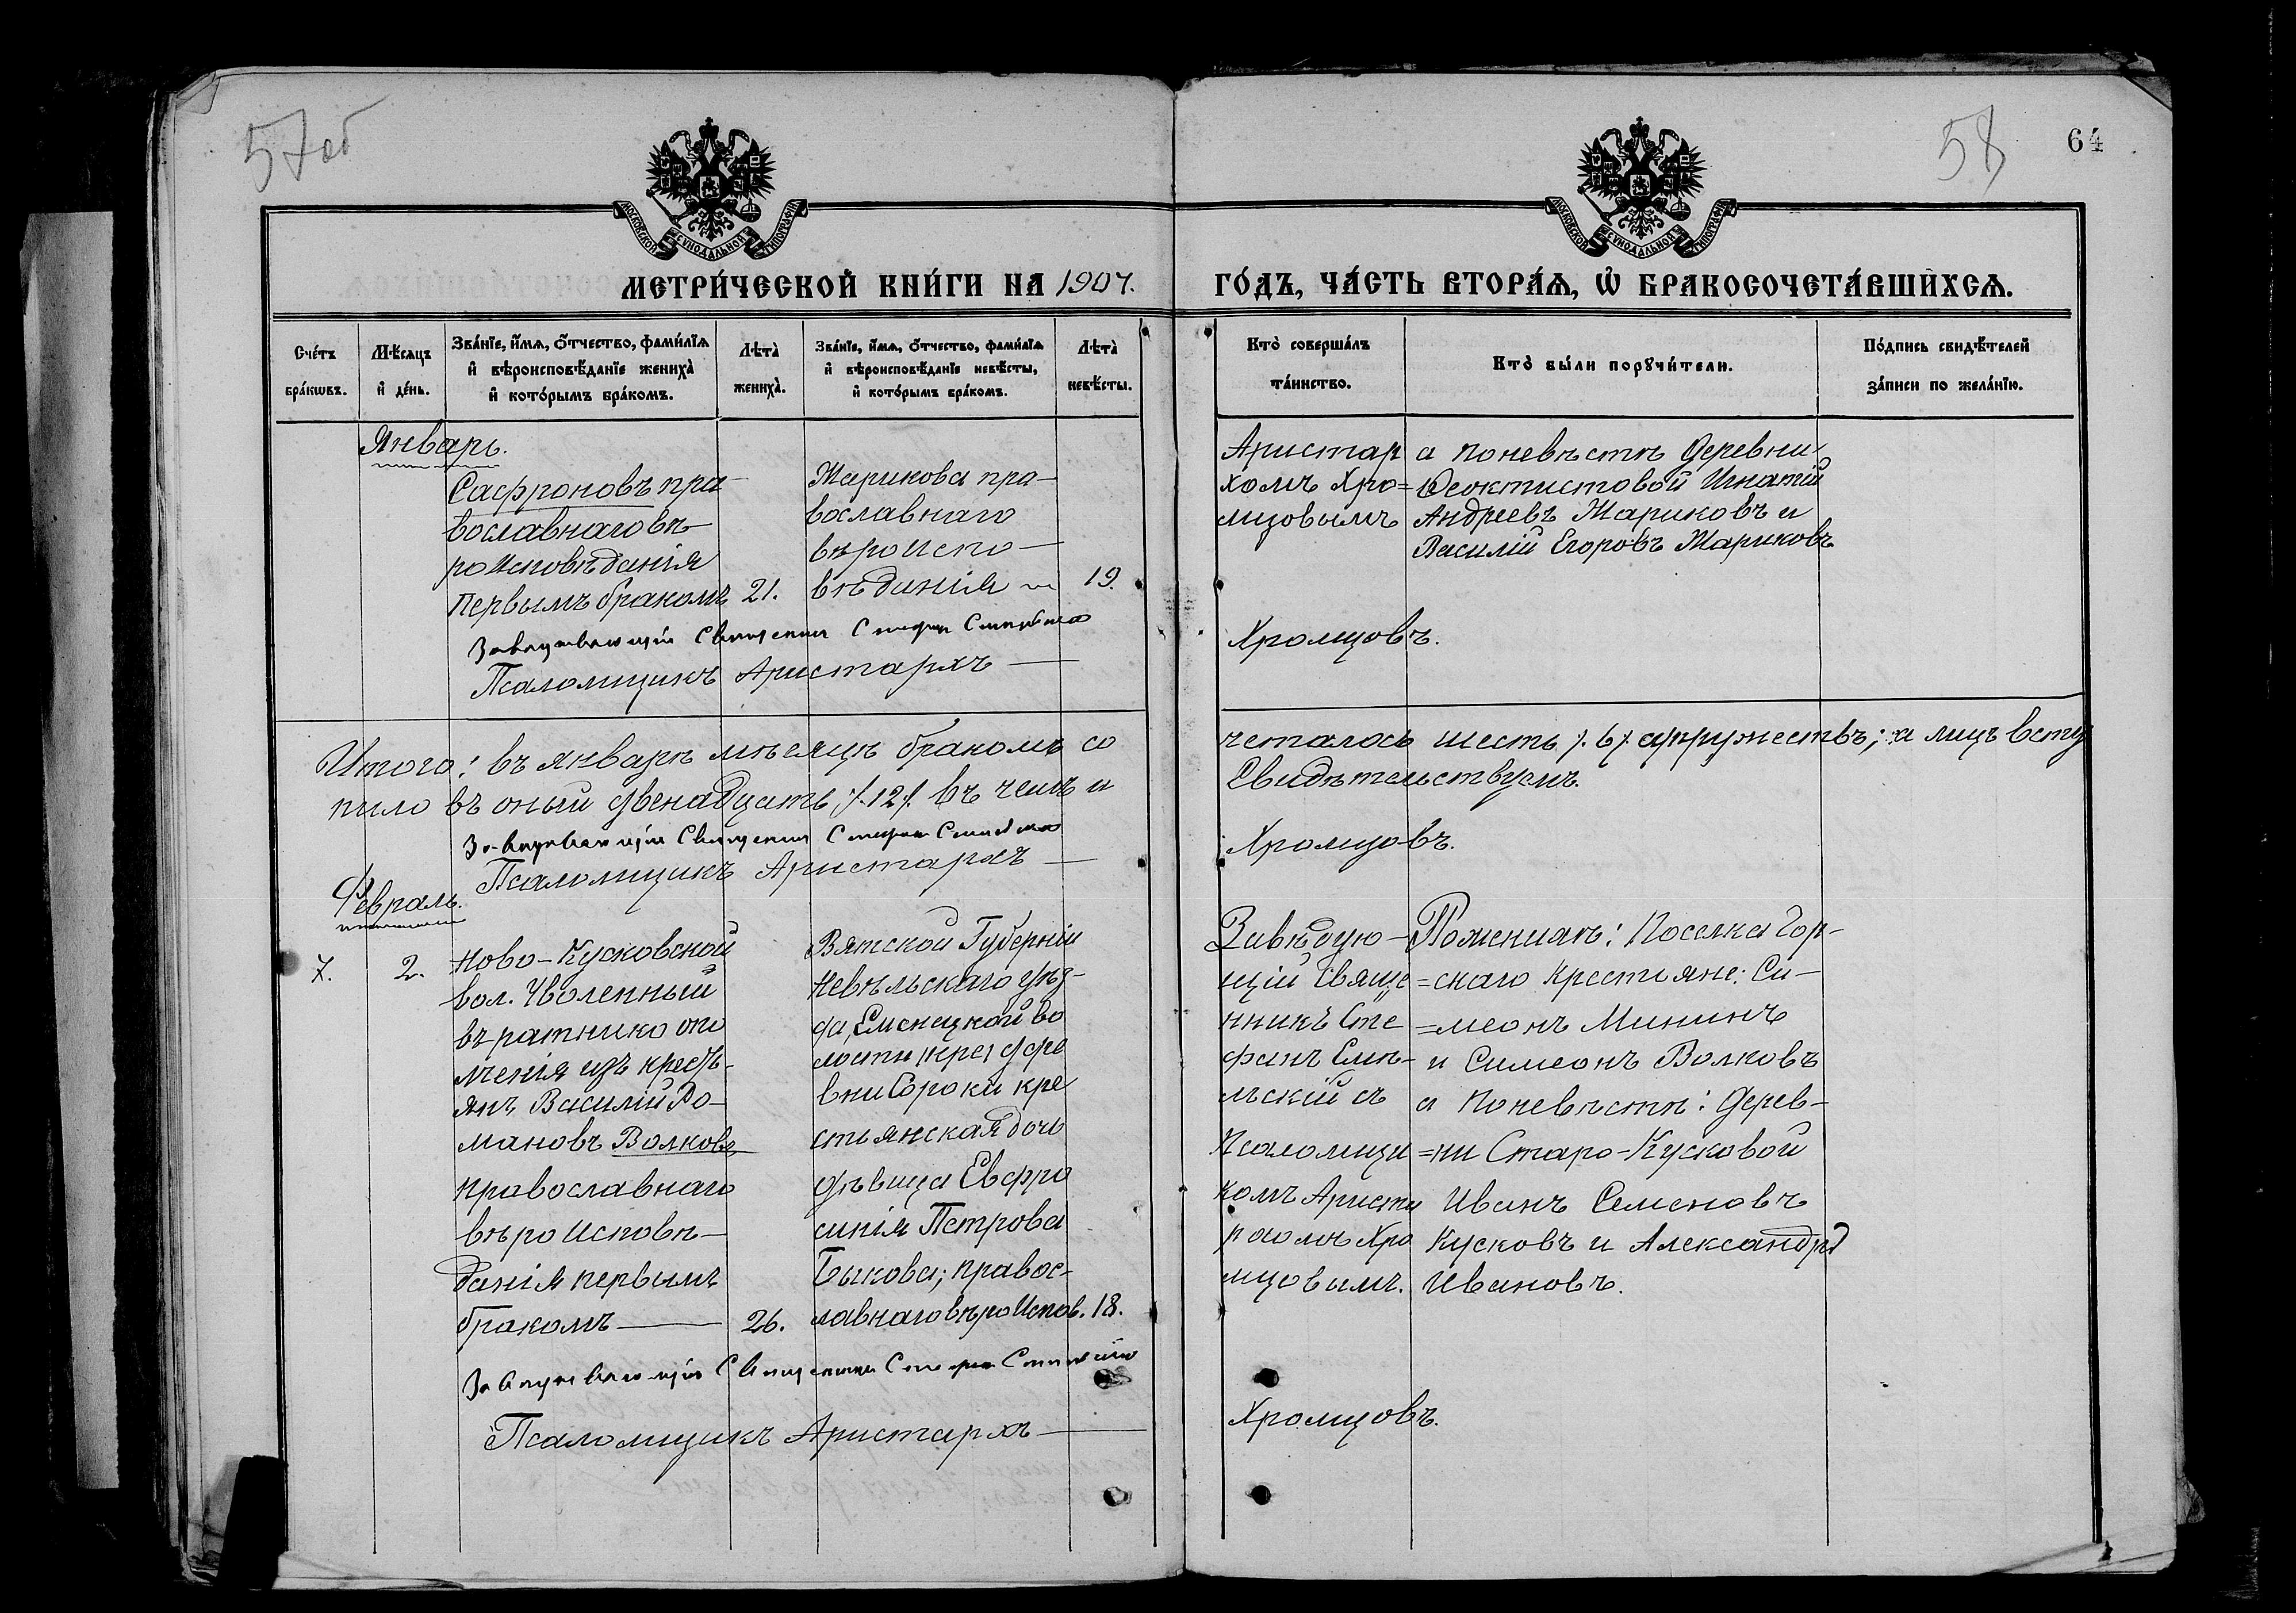 57об
58
64
МОСКОВСКОЙ СѴНОДАЛЬНОЙ ТИПОГРАФІИ
МОСКОВСКОЙ СѴНОДАЛЬНОЙ ТИПОГРАФІИ
МЕТРИ́ЧЕСКОЙ КНИ́ГИ НА 1907.
ГО́ДЪ, ЧА́СТЬ ВТОРА́Ѧ, Ѡ҆ БРАКОСОЧЕТА́ВШИХСѦ.
Сче́тъ
бра́кѡвъ.
Мѣ́сѧцъ
и҆ де́нь.
Зва́нїе, и҆́мѧ, ѻ҆́тчество, фами́лїѧ
и҆ вѣроисповѣ́данїе жениха̀
и҆ кото́рымъ бра́комъ.
Лѣта̀
жениха̀.
Зва́нїе, и҆́мѧ, ѻ҆́тчество, фами́лїѧ
и҆ вѣроисповѣ́данїе невѣ́сты,
и҆ кото́рымъ бра́комъ.
Лѣта̀
невѣ́сты.
Кто̀ соверша́лъ
та́инство.
Кто̀ бы́ли порꙋчи́тели.
По́дпись свидѣ́телей
за́писи по жела́нїю.
Январь.
Сафроновъ пра-
вославнаго вѣ-
роисповѣданія
первымъ бракомъ
21.
Жарикова пра-
вославнаго
вѣроиспо-
вѣданія
19.
Аристар
хомъ Хро=
мцовымъ
а поневѣстѣ деревни
Ѳеоктистовой Игнатій
Андреевъ Жариковъ и
Василій Егоровъ Жариковъ
Завѣдывающій Священникъ Стефанъ
Псаломщикъ Аристархъ —
Хромцовъ.
Итого: въ январѣ мѣсяцѣ бракомъ со
четалось шесть /.6/. супружествъ; а лицъ всту
пило въ оный двенадцать /.12/. въ чемъ и
Свидѣтельствуемъ.
Завѣдывающій Священникъ Стефанъ
Псаломщикъ Аристархъ —
Хромцовъ.
Февраль.
7.
2.
Ново-Кусковской
вол. Уволенный
въ ратники опо
лченія изъ крест.
янъ Василій Ро-
мановъ Волковъ
православнаго
вѣроисповѣ-
данія первымъ
бракомъ —
26.
Вятской Губерніи
Невѣльскаго уѣз-
да, Еменецкой во
лости дере
вни Сороки кре
стьянская дочь
дѣвица Евфро
синія Петрова
Быкова; правос-
лавнаго вѣроиспов.
18.
Завѣдую-
щій Свяще
нникъ Сте
фанъ Смѣ-
льскій съ
Псаломщи
комъ Ариста
рхомъ Хро
мцовымъ.
Поженихѣ: Поселка Гор-
=скаго крестьяне: Си-
=меонъ Мининъ
и Симеонъ Волковъ
а поневѣстѣ: дерев-
=ни Старо-Кусковой
Иванъ Семеновъ
Кусковъ и Александръ
Ивановъ.
Завѣдывающій Священникъ Стефанъ
Псаломщикъ Аристархъ —
Хромцовъ.